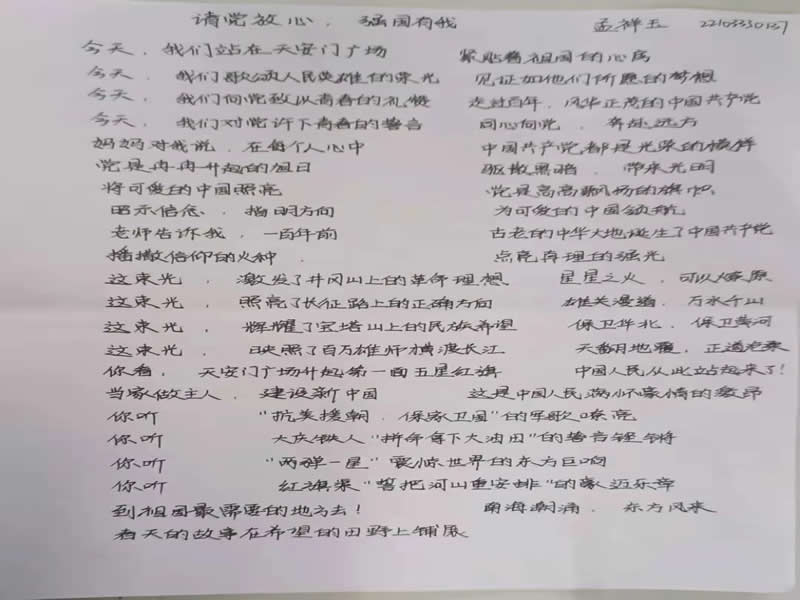 请党放心,强国有我 孟祥玉 22103350137
今天,我们站在天安门广场 紧贴着祖国的心房
今天,我们歌颂人民英雄的荣光 见证如他们所愿的梦想
今天,我们向党致以青春的礼赞 走过百年,风华正茂的中国共产党
今天,我们对党许下青春的誓言 同心向党,奔赴远方
妈妈对我说,在每个人心中 中国共产党都是光荣的模样
党是冉冉升起的旭日 驱散黑暗,带来光明
将可爱的中国照亮 党是高高飘扬的旗帜
昭示信念,指明方向 为可爱的中国领航
老师告诉我,一百年前 古老的中华大地诞生了中国共产党
播撒信仰的火种, 点亮真理的强光
这束光,激发了井冈山上的革命理想 星星之火,可以燎原
这束光,照亮了长征路上的正确方向 雄关漫道,万水千山
这束光,辉耀了宝塔山上的民族希望 保卫华北,保卫黄河
这束光,映照了百万雄师横渡长江 天翻地覆,正道沧桑
你看,天安门广场升起第一面五星红旗 中国人民从此站起来了!
当家做主人,建设新中国 这是中国人民满怀豪情的激昂
你听 "抗美援朝,保家卫国"的军歌嘹亮
你听 大庆铁人"拼命拿下大油田"的誓言铿锵
你听 "两弹一星"震惊世界的东方巨响
你听 红旗渠"誓把河山重安排"的豪迈乐章
到祖国最需要的地方去! 南海潮涌,东方风来
春天的故事在希望的田野上铺展